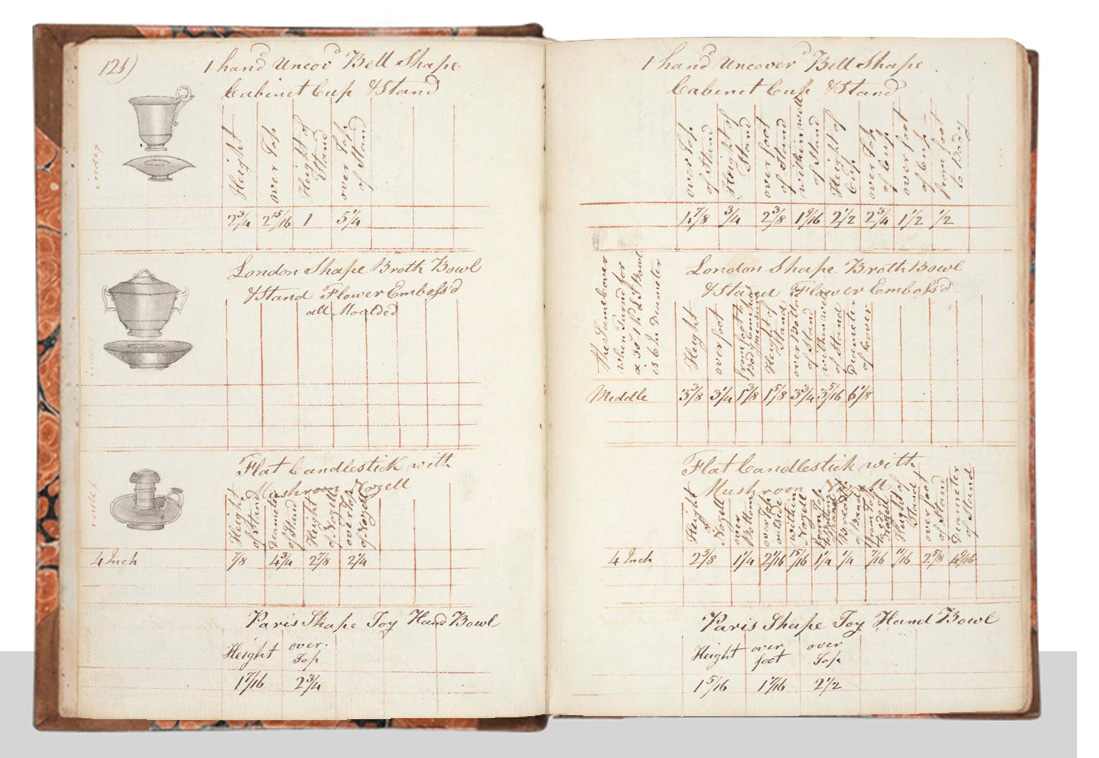 121)
1 hand Uncov'd Bell Shape
Cabinet Cup & Stand
Height
over Top
Height of Stand
over Top of Stand
2 3/4 2 13/16 1 5 1/4
index
London Shape Broth Bowl
& Stand Flower Emboss'd
all Moulded
Flat Candlestick with
Mushroom Nozell
index
Height of Stand
Deameter of Stand
Height of Nozell
over Top of Nozell
4 Inch 7/8 4 3/4 2 7/8 2 1/4
Paris Shape Toy Hand Bowl
Height over Top
1 7/16 2 3/4
1 hand Uncover Bell Shape
Cabinet Cup & Stand
over Top of Stand
Height of Stand
over foot of Stand
within well of Stand
Height of Cup
over Top of Cup
over foot of Cup
from foot to Body
1 7/8 3/4 2 3/8 1 9/16 2 1/2 2 3/4 1 1/2 1/2
London Shape Broth Bowl
& Stand Flower Emboss'd
The same cover
when Turnd for
is 6 In Deameter
Height
over foot
Height of Stand
of Stand
of Stand
Deameter of Cover
Middle 3 3/8 3 1/4 1 3/8 1 5/8 3 3/4 3 5/16 6 1/8
Flat Candlestick with
Mushroom
Height Nozell
over
within Nozell
Height of Stand
over foot of Stand
Deameter of Stand
4 Inch 2 3/8 1 1/4 2 1/16 15/16 1 1/4 1/4 7/16 11/16 2 7/8
Paris Shape Toy Hand Bowl
Height over foot over Top
1 5/16 1 1/16 2 1/2